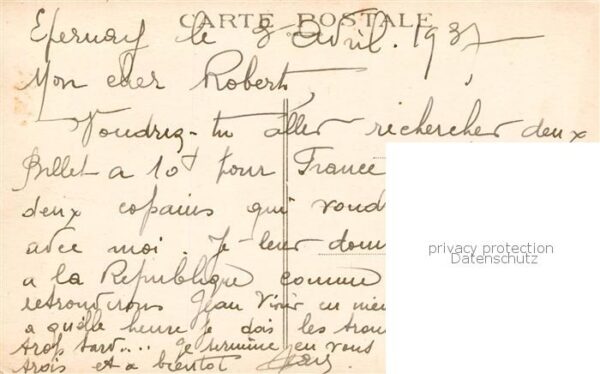 CARTE POSTALE
Epernay le 8 avril. 1937
Mon cher Robert,
Voudriz-tu aller rechercher deux
Billet a 10f pour France
deux copains qui voud
avec moi. Je leur donn
a la Republique comme
retrouvirons Jean
a quelle heure je dois les trou
trop tard.... Je termine en vous
trois et a bientot
privacy protection
Datenschutz